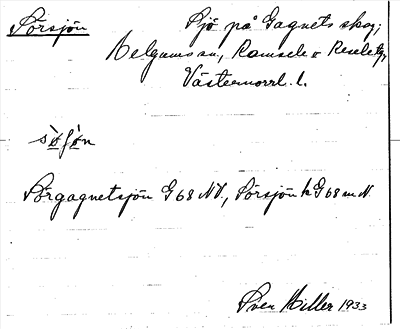 Sörsjön
Sjö på Gagnets skog;
Helgums sn, Ramsele o Resele tg,
Västernorrl. l.
Sörgagnetsjön G 68 NV, Sörsjön k G 68 m N.
Sven Hiller 1933